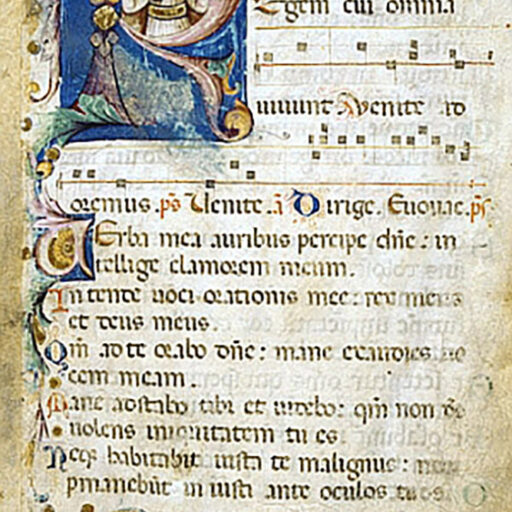 Egem cui omnia
uiuunt Venite ado
oremus. ps Uenite. a Dirige. Euouae. ps
Uerba mea auribus percipe dñe: in
tellige clamorem meum.
Intente uoci orationis mee: rex meus
et deus meus.
Qm̃ ad te orabo dñe: mane exaudies uo
cem meam.
Mane adstabo tibi et uidebo: qm̃ non de
uolens iniquitatem tu es
Neq habitabit iusta te malignus:
pmanebũt iniusti ante oculos tuos.